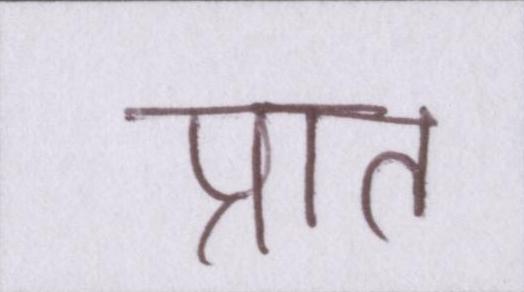 प्रात